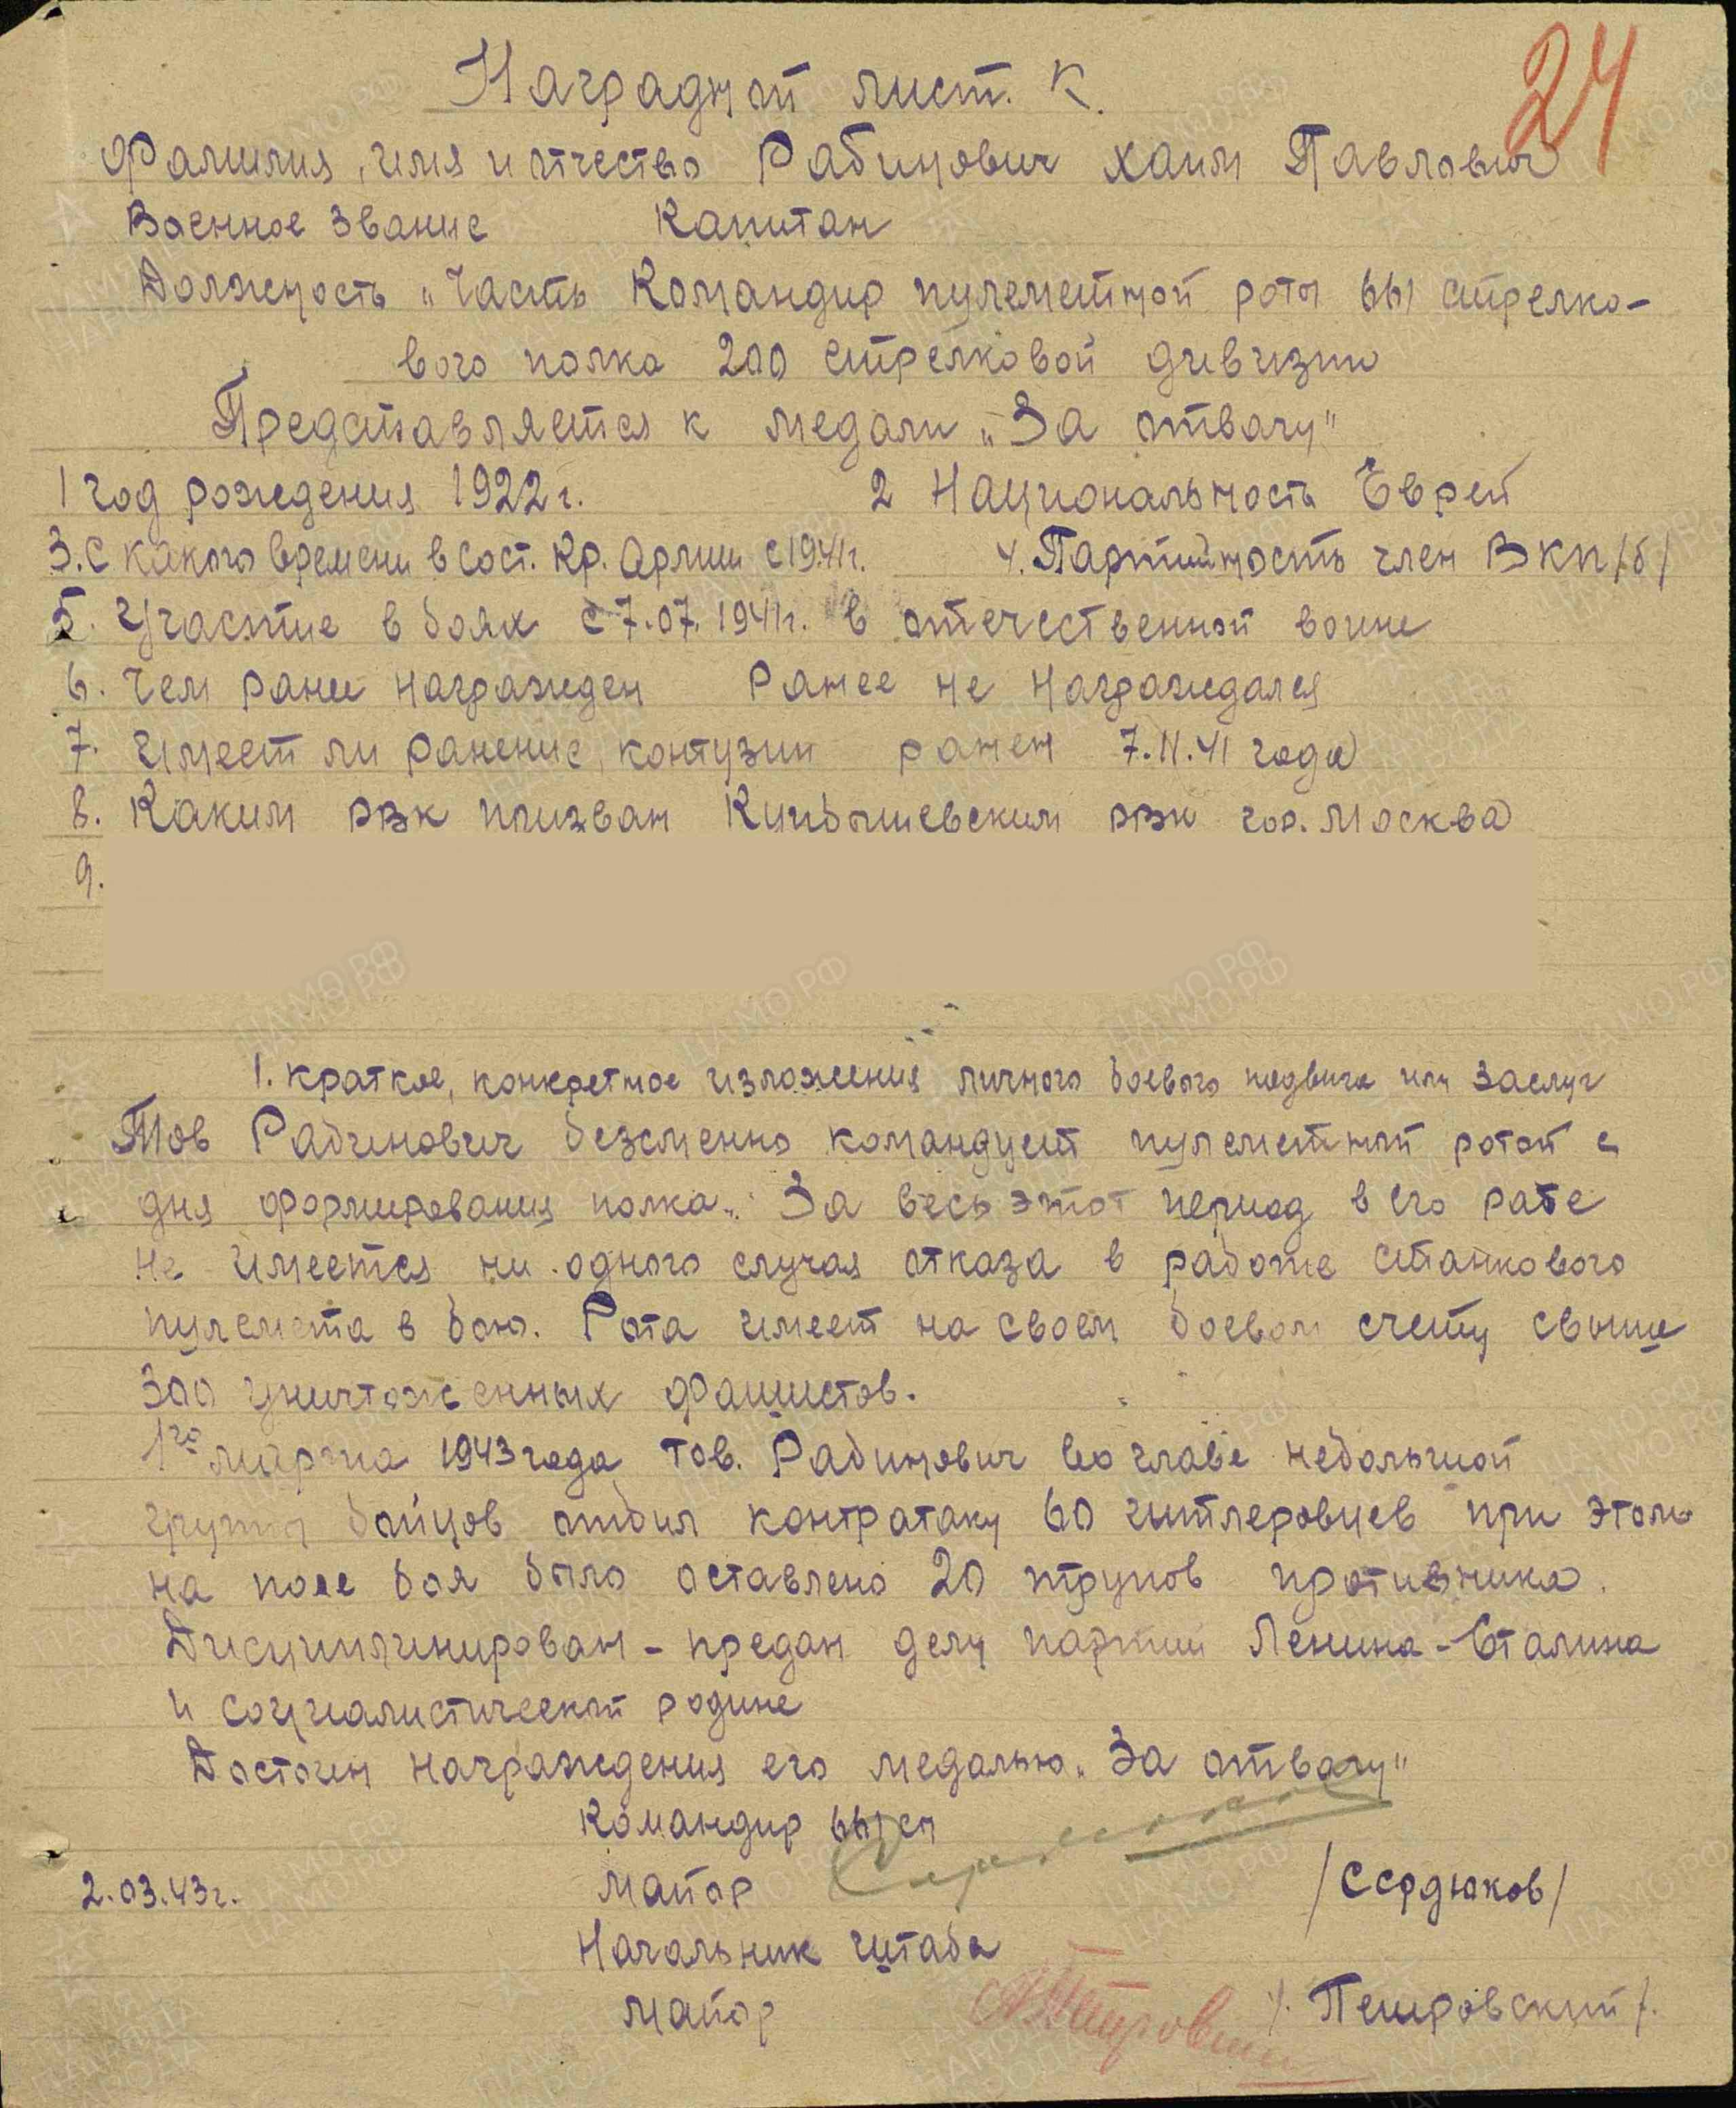 24
Наградной лист. К.
Фамилия, имя и отчество Рабинович Хаим Павлович
Военное звание Капитан
Должность и часть Командир пулеметной роты 661 стрелко-
вого полка 200 стрелковой дивизии
Представляется к медали „За отвагу"
1 год рождения 1922 г. 2 Национальность Еврей
3. С какого времени в сост. Кр. Армии с 1941 г. 4. Партийность член ВКП/б/
5. Участие в боях с 7.07.1941 г. в отечественной воине
6. Чем ранее награжден Ранее не награждался
7. Имеет ли ранение, контузии ранен 7.11.41 года
8. Каким РВК призван Куйбышевским РВК гор. Москва
9.
1. краткое, конкретное изложения личного боевого подвига или заслуг
Тов Рабинович безсменно командует пулеметной ротой с
дня формирования полка. За весь этот период в его рабе
не имеется ни одного случая отказа в работе станкового
пулемета в бою. Рота имеет на своем боевом счету свыше
300 уничтоженных фашистов.
1го марта 1943 года тов. Рабинович во главе небольшой
группы бойцов отбил контратаку 60 гитлеровцев при этом
на поле боя было оставлено 20 трупов противника.
Дисциплинирован - предан делу партии Ленина - Сталина
и социалистической родине
Достоин награждения его медалью „За отвагу"
Командир 661 сп
2.03.43 г. майор /Сердюков/
Начальник штаба
майор /Петровский/.